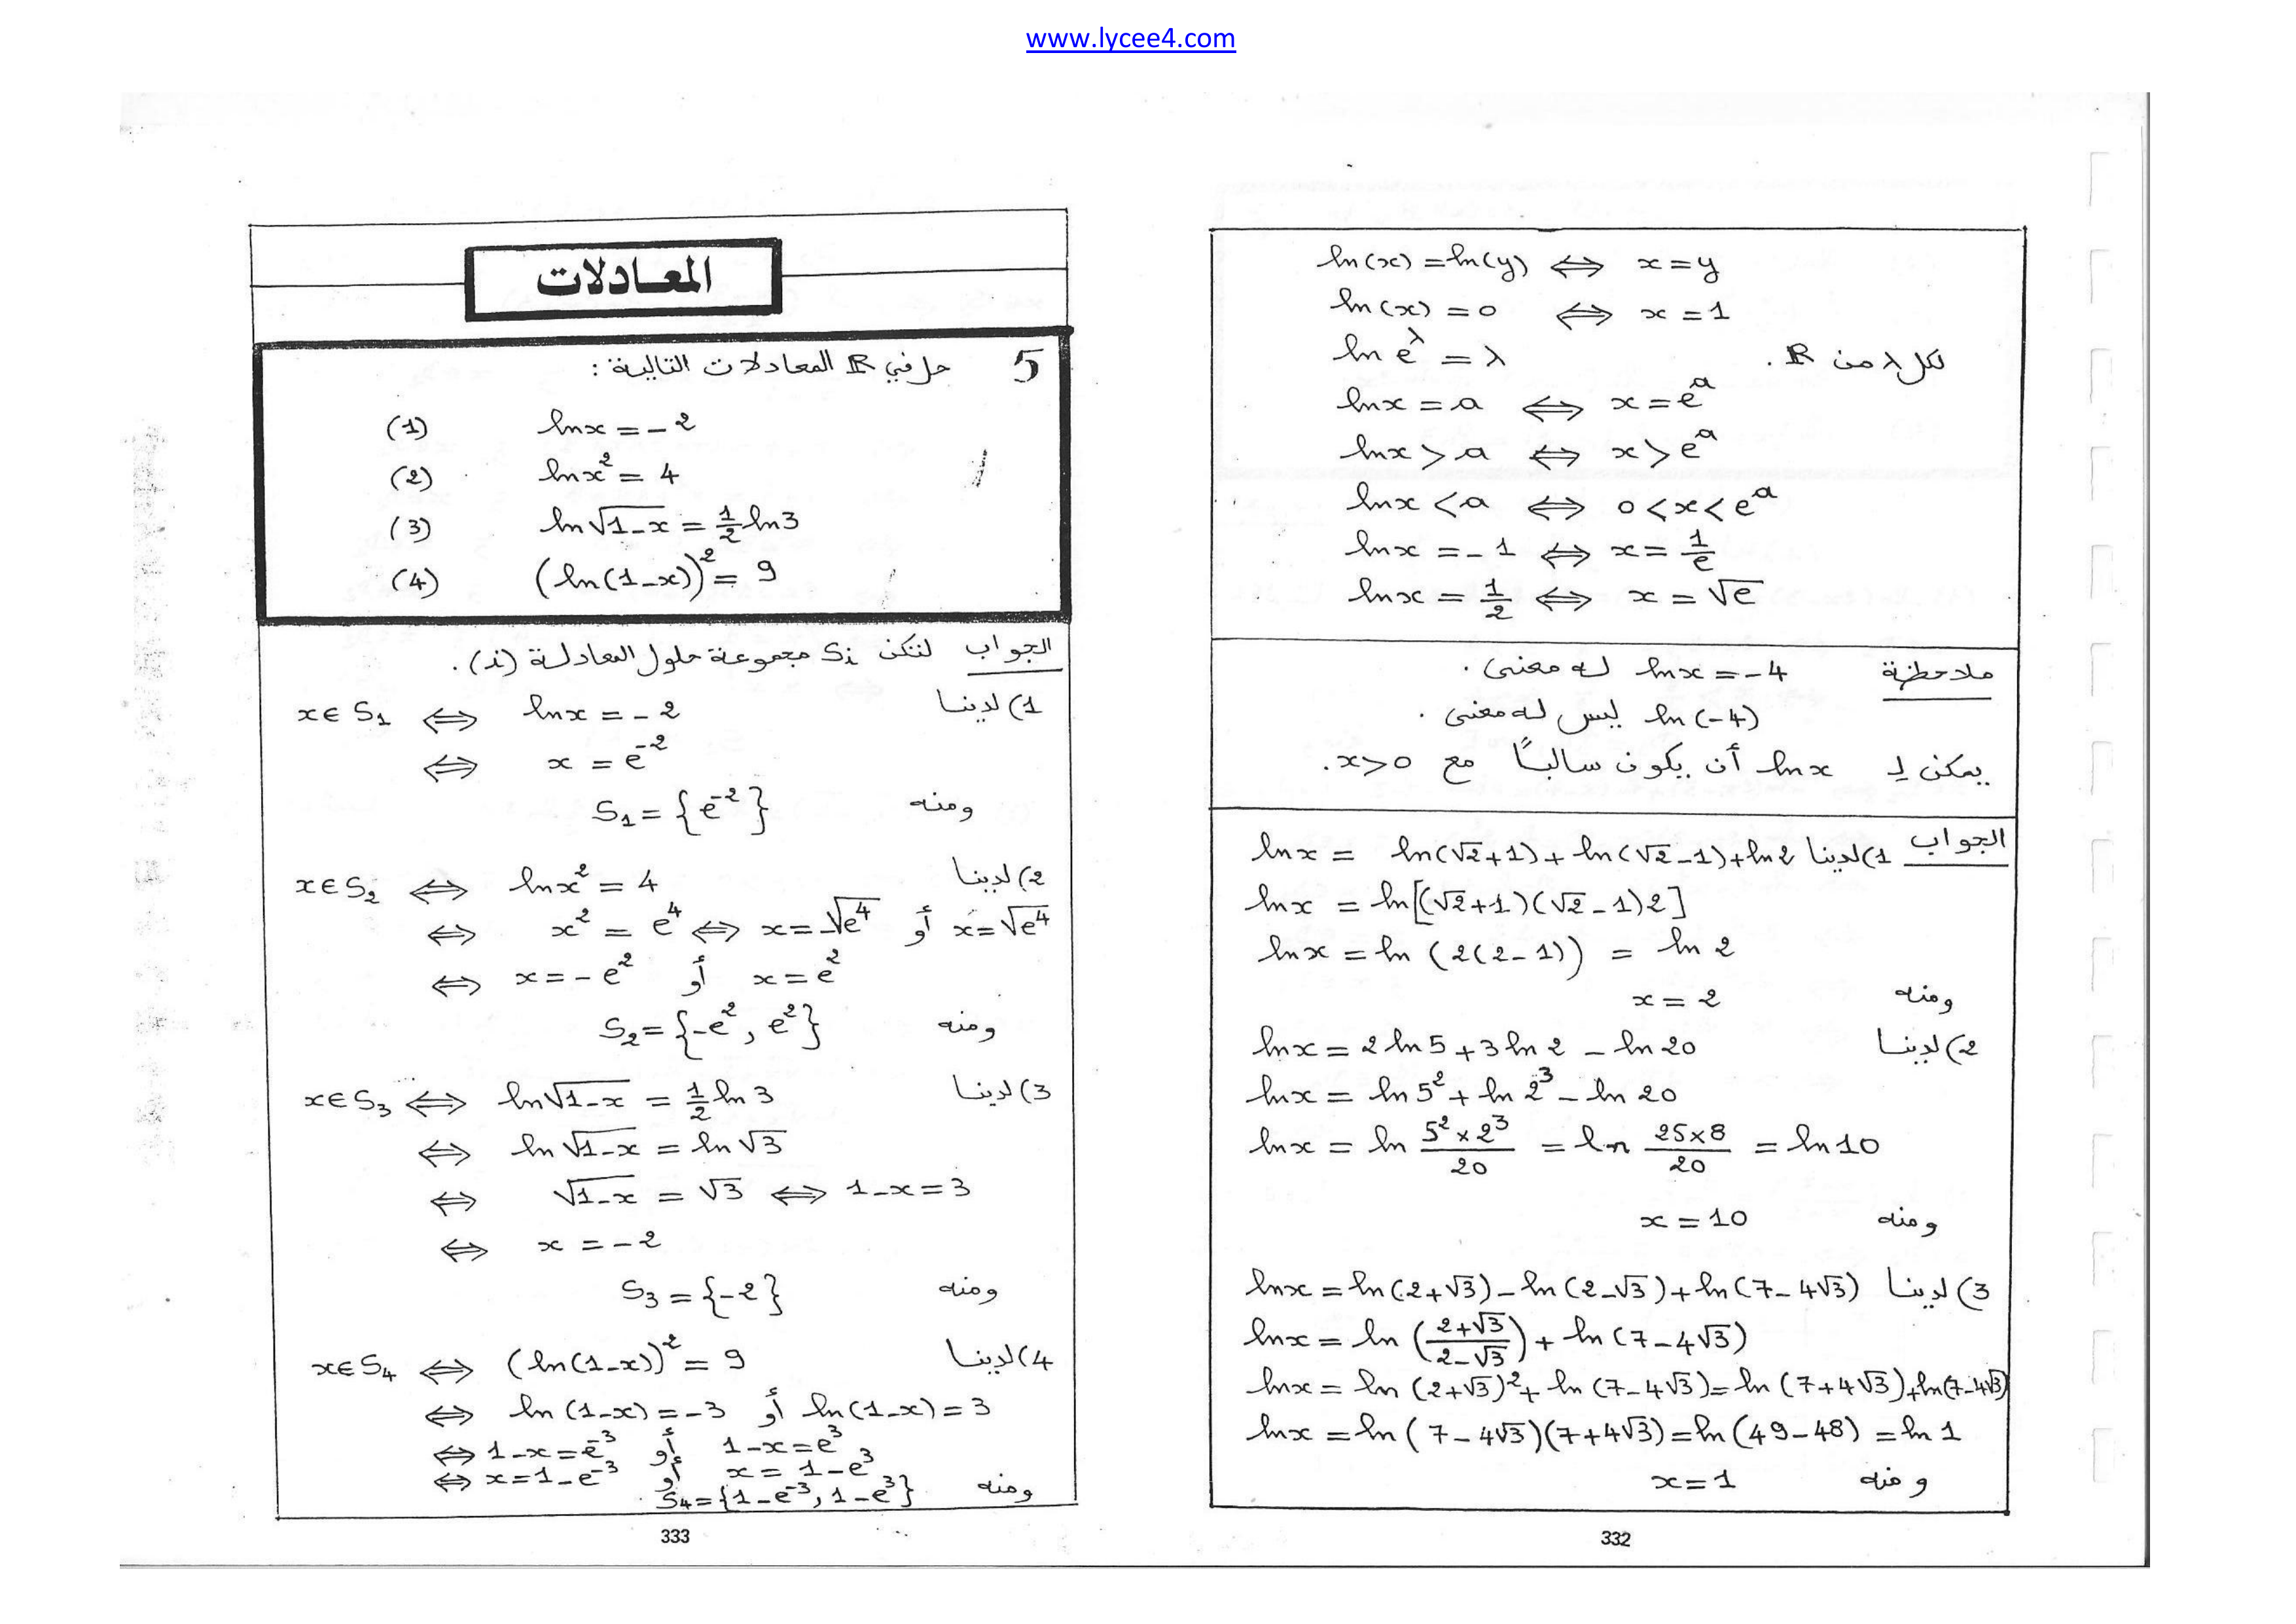 www.lycee4.com
ln(x) = ln(y) ⟺ x = y
ln(x) = 0 ⟺ x = 1
ln e^λ = λ لكل λ من ℝ.
ln x = a ⟺ x = e^a
ln x > a ⟺ x > e^a
ln x < a ⟺ 0 < x < e^a
ln x = -1 ⟺ x = 1/e
ln x = 1/2 ⟺ x = √e
ملاحظة ln x = -4 له معنى.
ln(-4) ليس له معنى.
يمكن لـ ln x أن يكون سالبًا مع x>0.
الجواب 1) لدينا ln x = ln(√2+1) + ln(√2-1) + ln 2
ln x = ln[(√2+1)(√2-1)2]
ln x = ln (2(2-1)) = ln 2
ومنه x = 2
2) لدينا ln x = 2 ln 5 + 3 ln 2 - ln 20
ln x = ln 5² + ln 2³ - ln 20
ln x = ln (5² × 2³)/20 = ln (25×8)/20 = ln 10
ومنه x = 10
3) لدينا ln x = ln(2+√3) - ln(2-√3) + ln(7-4√3)
ln x = ln ((2+√3)/(2-√3)) + ln(7-4√3)
ln x = ln (2+√3)² + ln(7-4√3) = ln(7+4√3) + ln(7-4√3)
ln x = ln(7-4√3)(7+4√3) = ln(49-48) = ln 1
ومنه x = 1
332
المعادلات
5 حل في ℝ المعادلات التالية :
(1) ln x = -2
(2) ln x² = 4
(3) ln√(1-x) = 1/2 ln 3
(4) (ln(1-x))² = 9
الجواب لتكن Si مجموعة حلول المعادلة (i).
1) لدينا x ∈ S₁ ⟺ ln x = -2
⟺ x = e⁻²
ومنه S₁ = {e⁻²}
2) لدينا x ∈ S₂ ⟺ ln x² = 4
⟺ x² = e⁴ ⟺ x = -√e⁴ أو x = √e⁴
⟺ x = -e² أو x = e²
ومنه S₂ = {-e², e²}
3) لدينا x ∈ S₃ ⟺ ln√(1-x) = 1/2 ln 3
⟺ ln√(1-x) = ln√3
⟺ √(1-x) = √3 ⟺ 1-x = 3
⟺ x = -2
ومنه S₃ = {-2}
4) لدينا x ∈ S₄ ⟺ (ln(1-x))² = 9
⟺ ln(1-x) = -3 أو ln(1-x) = 3
⟺ 1-x = e⁻³ أو 1-x = e³
⟺ x = 1-e⁻³ أو x = 1-e³
ومنه S₄ = {1-e⁻³, 1-e³}
333